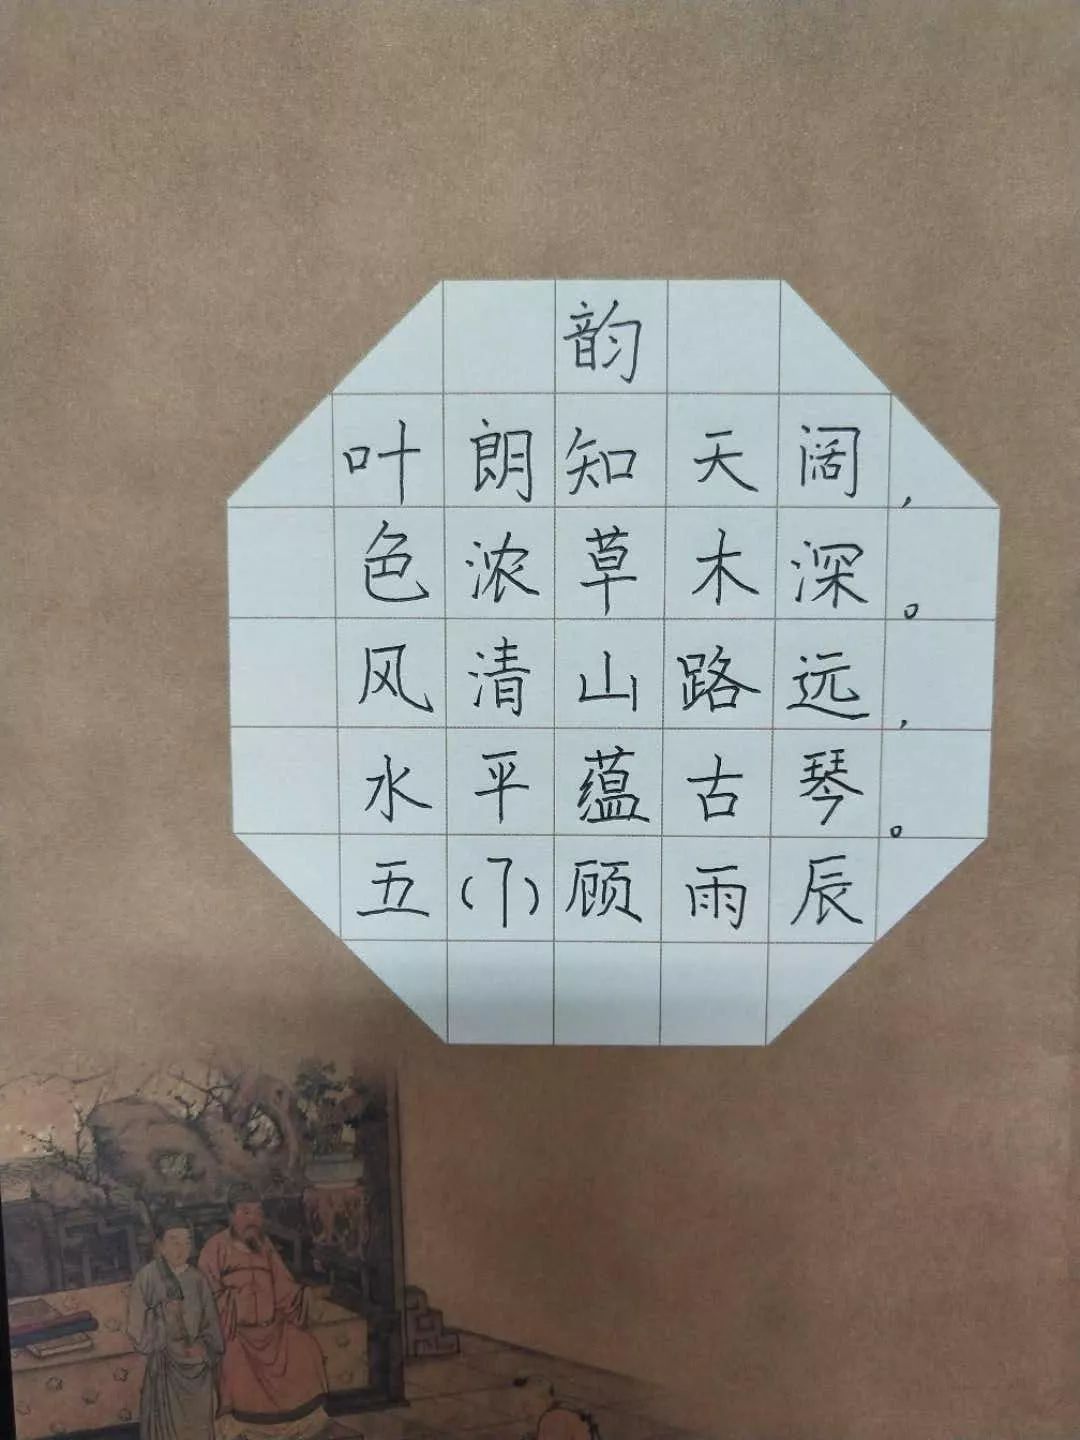 韵
叶朗知天阔，
色浓草木深。
风清山路远，
水平蕴古琴。
五(1)顾雨辰